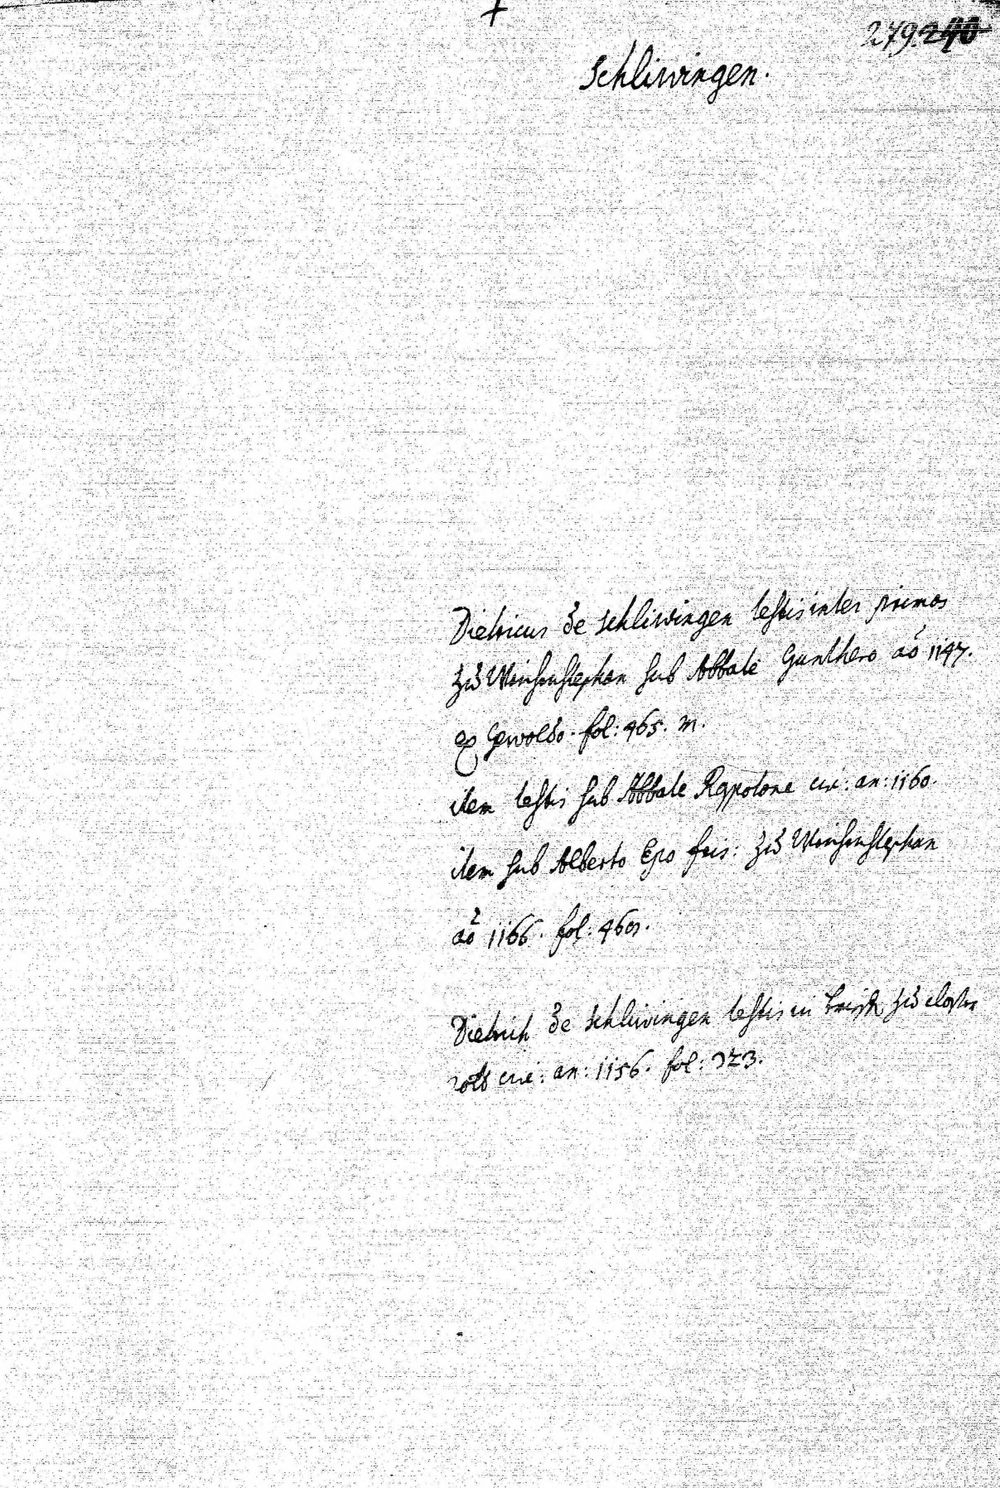 279. 240
Schliwingen.
Dietricus de Schliwingen testis inter primos
zu Weihenstephan sub Abbate Gunthero ao 1147.
ex Gewoldo. fol: 465. m.
item testis sub Abbate Rapotone circ: an: 1160.
item sub Alberto Epo fris: zu Weihenstephan
ao 1166. fol: 460.
Dietrich de Schliwingen testis in zu closter
rott circ: an: 1156. fol: 323.